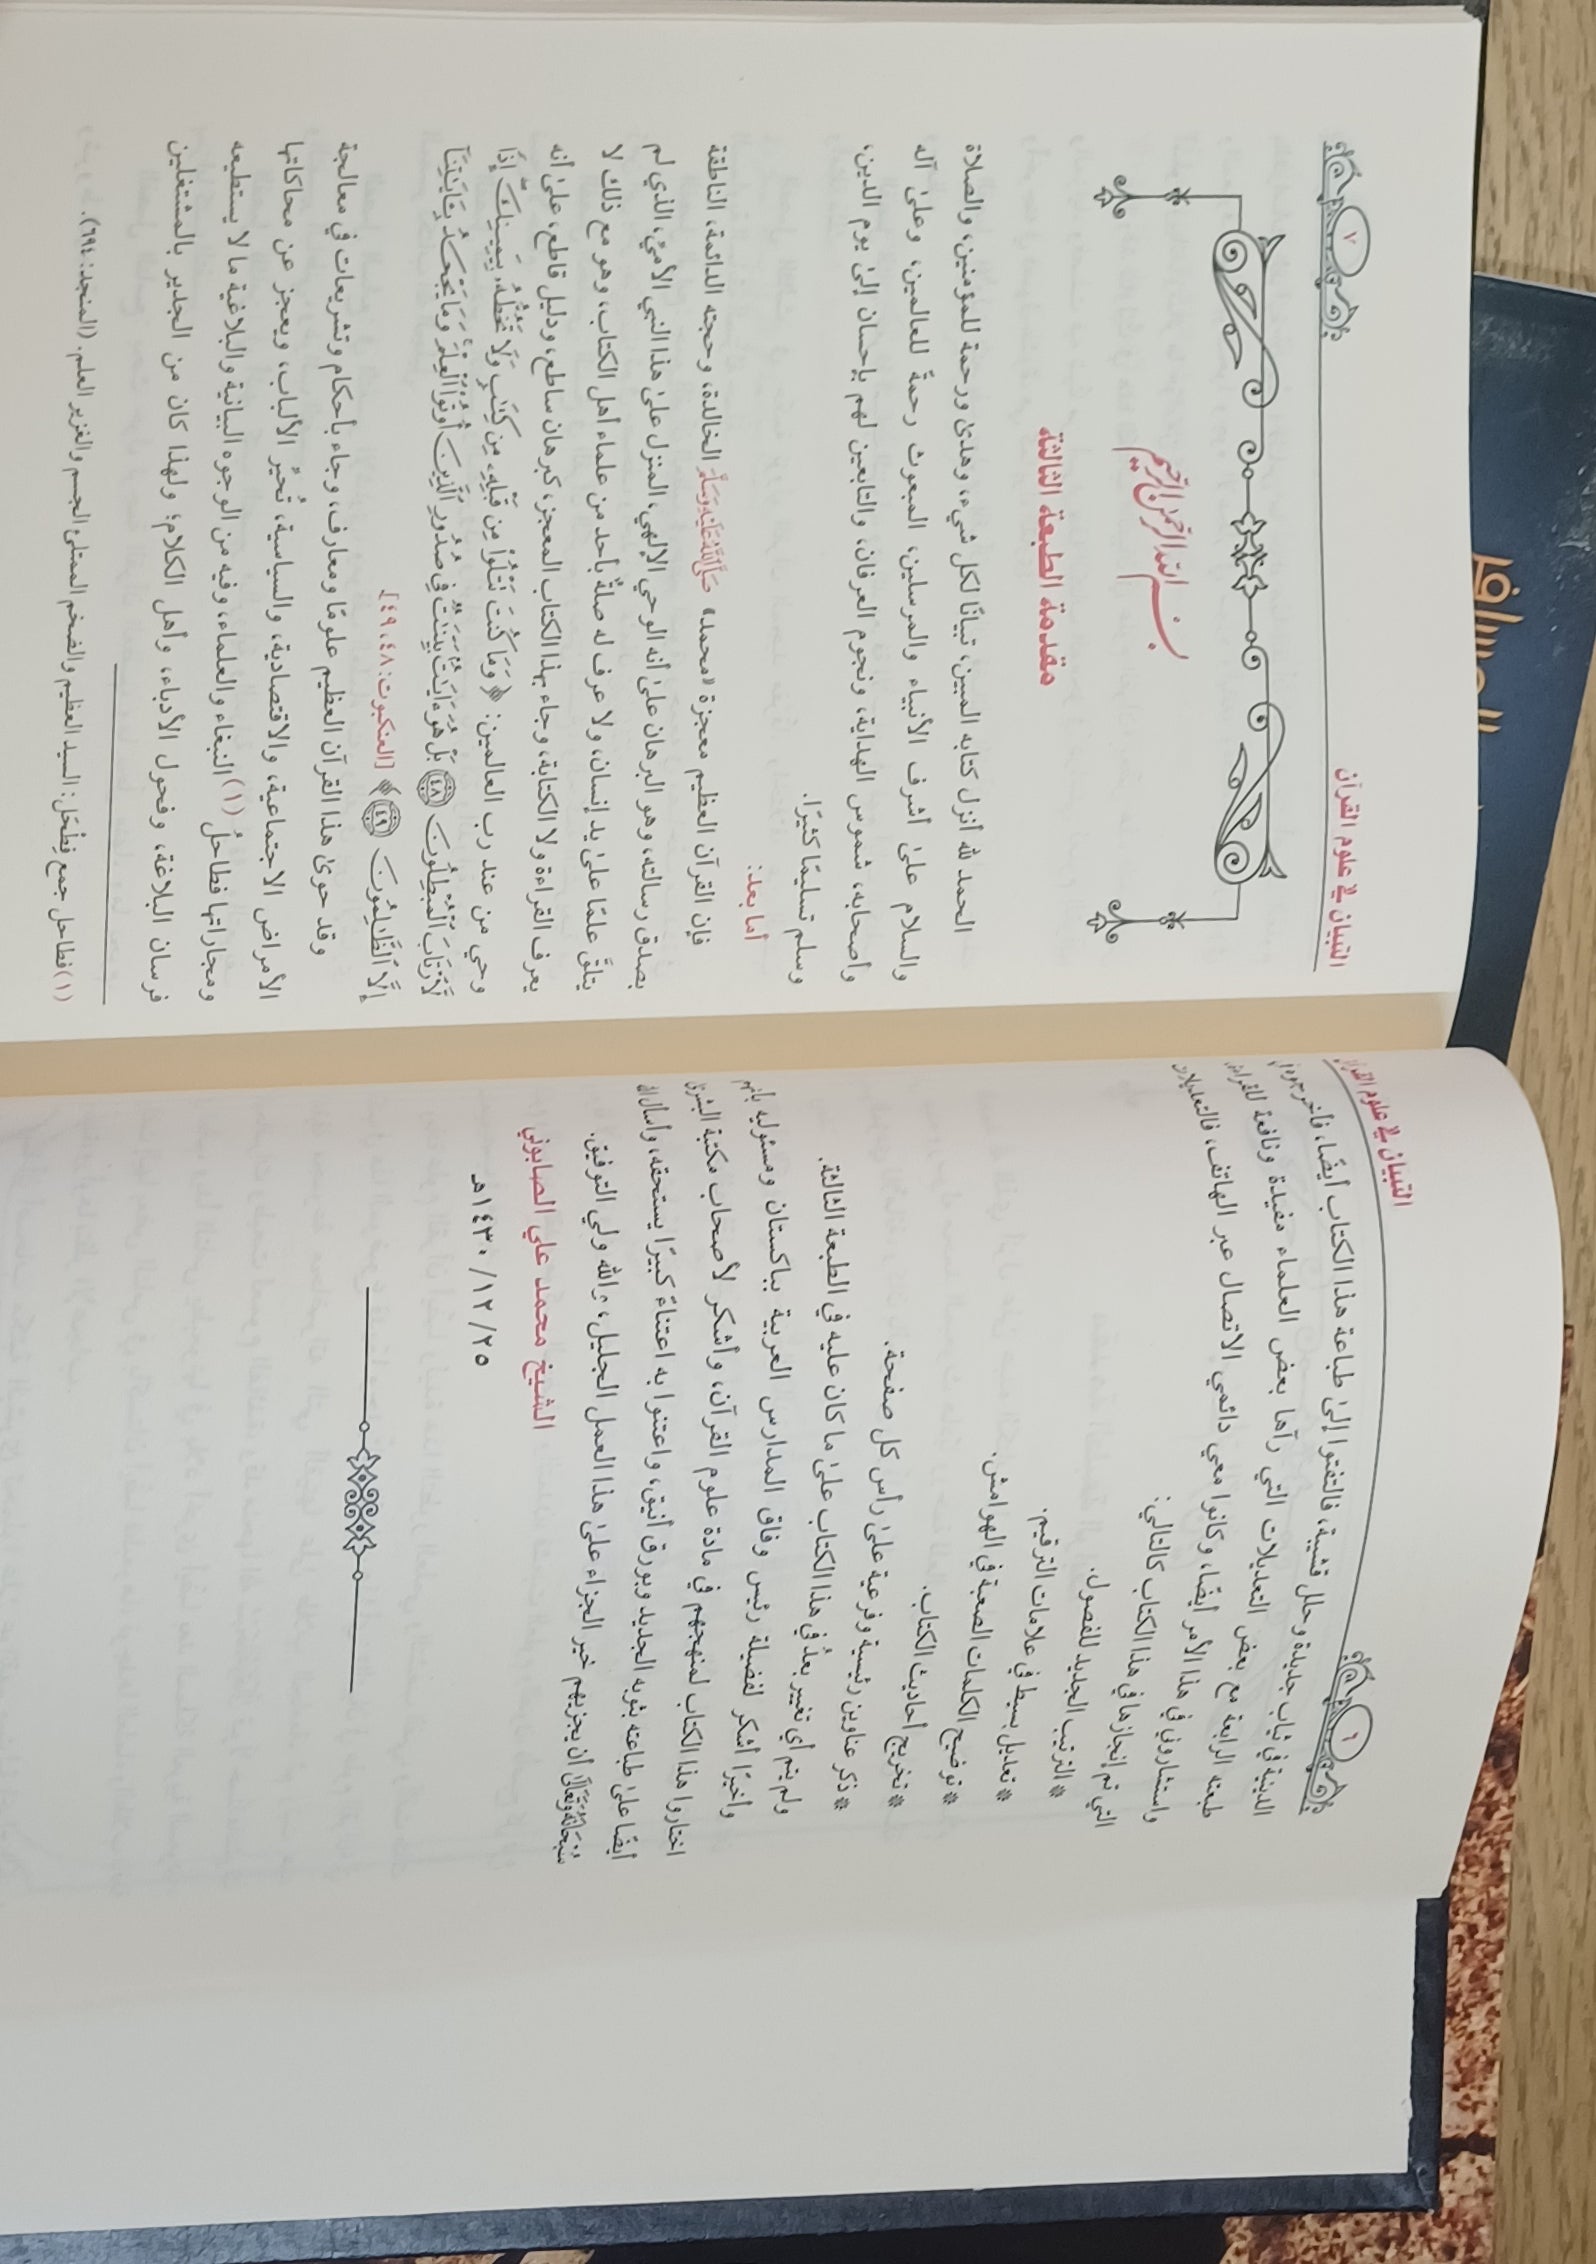 ٦
التبيان في علوم القرآن
الدينية في ثياب جديدة وحلل قشيبة، فالتفتوا إلى طباعة هذا الكتاب أيضًا، فأخرجوه في
طبعته الرابعة مع بعض التعديلات التي رآها بعض العلماء مفيدة ونافعة للقراء،
واستشاروني في هذا الأمر أيضًا، وكانوا معي دائمي الاتصال عبر الهاتف، فالتعديلات
التي تم إنجازها في هذا الكتاب كالتالي:
* الترتيب الجديد للفصول.
* تعديل بسيط في علامات الترقيم.
* توضيح الكلمات الصعبة في الهوامش.
* تخريج أحاديث الكتاب.
* ذكر عناوين رئيسية وفرعية على رأس كل صفحة.
ولم يتم أي تغيير بعدُ في هذا الكتاب على ما كان عليه في الطبعة الثالثة.
وأخيرًا أشكر لفضيلة رئيس وفاق المدارس العربية بباكستان ومسئوليه بأنهم
اختاروا هذا الكتاب لمنهجهم في مادة علوم القرآن، وأشكر لأصحاب مكتبة البشرى
أيضًا على طباعته بثوبه الجديد وبورق أنيق، واعتنوا به اعتناءً كبيرًا يستحقه، وأسأل الله
سُبْحَانَهُ وَتَعَالَى أن يجزيهم خير الجزاء على هذا العمل الجليل، والله ولي التوفيق.
الشيخ محمد علي الصابوني
٢٥/ ١٢/ ١٤٣٠هـ
التبيان في علوم القرآن
٧
بسم الله الرحمن الرحيم
مقدمة الطبعة الثالثة
الحمد لله أنزل كتابه المبين، تبيانًا لكل شيء، وهدىً ورحمة للمؤمنين، والصلاة
والسلام على أشرف الأنبياء والمرسلين، المبعوث رحمةً للعالمين، وعلى آله
وأصحابه، شموس الهداية، ونجوم العرفان، والتابعين لهم بإحسان إلى يوم الدين،
وسلم تسليمًا كثيرًا.
أما بعد:
فإن القرآن العظيم معجزة «محمد» صَلَّى اللَّهُ عَلَيْهِ وَسَلَّمَ الخالدة، وحجته الدائمة، الناطقة
بصدق رسالته، وهو البرهان على أنه الوحي الإلهي، المنزل على هذا النبي الأميّ، الذي لم
يتلقَّ علمًا على يد إنسان، ولا عرف له صلةٌ بأحد من علماء أهل الكتاب، وهو مع ذلك لا
يعرف القراءة ولا الكتابة، وجاء بهذا الكتاب المعجز، كبرهان ساطع، ودليل قاطع، على أنه
وحي من عند رب العالمين: ﴿ وَمَا كُنتَ تَتْلُوا۟ مِن قَبْلِهِۦ مِن كِتَٰبٍ وَلَا تَخُطُّهُۥ بِيَمِينِكَ ۖ إِذًا
لَّٱرْتَابَ ٱلْمُبْطِلُونَ ٤٨ بَلْ هُوَ ءَايَٰتٌۢ بَيِّنَٰتٌ فِى صُدُورِ ٱلَّذِينَ أُوتُوا۟ ٱلْعِلْمَ ۚ وَمَا يَجْحَدُ بِـَٔايَٰتِنَآ
إِلَّا ٱلظَّٰلِمُونَ ٤٩ ﴾ [العنكبوت: ٤٨، ٤٩].
وقد حوى هذا القرآن العظيم علومًا ومعارف، وجاء بأحكام وتشريعات في معالجة
الأمراض الاجتماعية، والاقتصادية، والسياسية، تُحيِّر الألباب، ويعجز عن محاكاتها
ومجاراتها فطاحلُ (١) النبغاء والعلماء، وفيه من الوجوه البيانية والبلاغية ما لا يستطيعه
فرسان البلاغة، وفحول الأدباء، وأهل الكلام؛ ولهذا كان من الجدير بالمشتغلين
(١) فطاحل جمع فِطْحَل: السيد العظيم والضخم الممتلئ الجسم والغزير العلم. (المنجد: ٦٩٤).